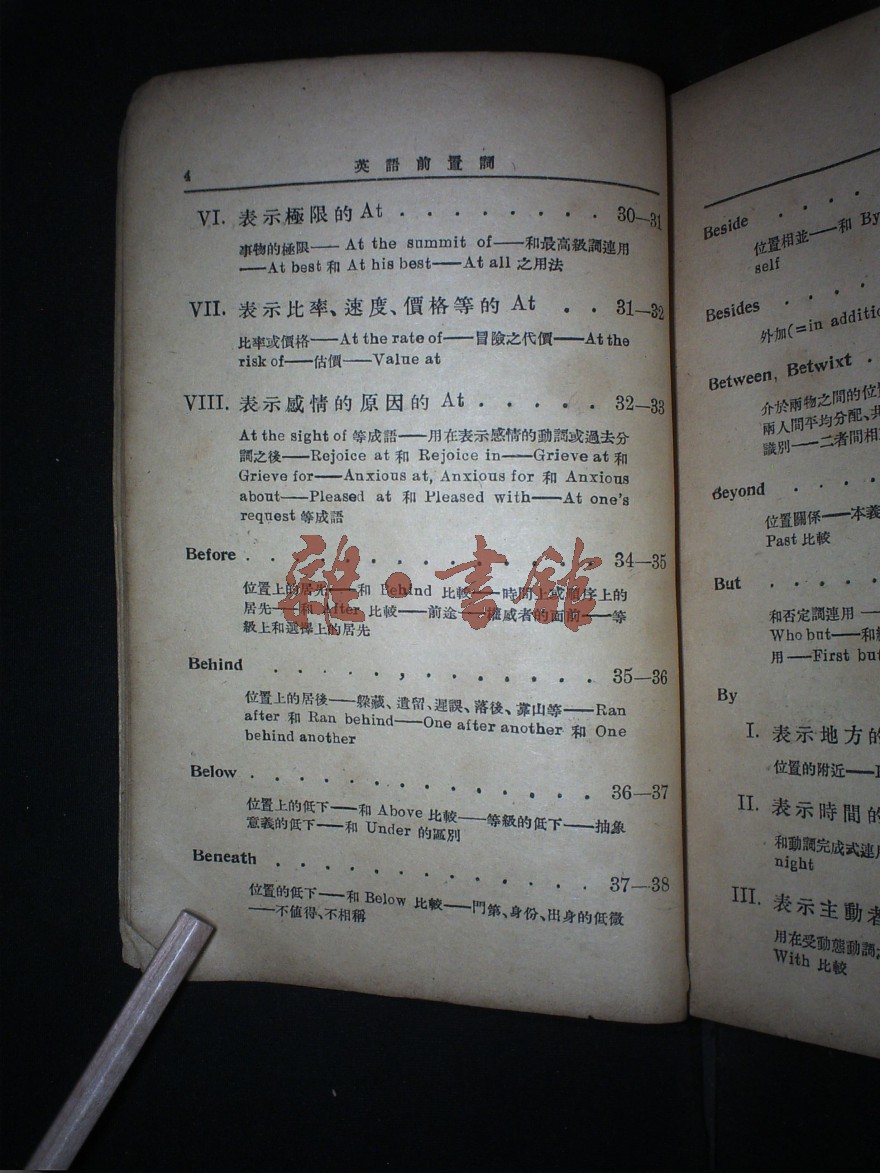 4 英語前置詞
VI. 表示極限的 At . . . . . . . . 30—31
事物的極限—— At the summit of——和最高級詞連用
——At best 和 At his best——At all 之用法
VII. 表示比率、速度、價格等的 At . . 31—32
比率或價格——At the rate of——冒險之代價——At the
risk of——估價——Value at
VIII. 表示感情的原因的 At . . . . . 32—33
At the sight of 等成語——用在表示感情的動詞或過去分
詞之後——Rejoice at 和 Rejoice in——Grieve at 和
Grieve for——Anxious at, Anxious for 和 Anxious
about——Pleased at 和 Pleased with——At one's
request 等成語
Before . . . . . . . . . . . . . . 34—35
位置上的居先——和 Behind 比較——時間上或順序上的
居先——和 After 比較——前途——權威者的面前——等
級上和選擇上的居先
書館
Behind . . . . , . . . . . . . 35—36
位置上的居後——躲藏、遺留、遲誤、落後、靠山等——Ran
after 和 Ran behind——One after another 和 One
behind another
Below . . . . . . . . . . . . 36—37
位置上的低下——和 Above 比較——等級的低下——抽象
意義的低下——和 Under 的區別
Beneath . . . . . . . . . . . . 37—38
位置的低下——和 Below 比較——門第、身份、出身的低微
——不值得、不相稱
Beside . . . .
位置相並——和 By
self
Besides . . . .
外加(=in additio
Between, Betwixt .
介於兩物之間的位
兩人間平均分配、
識別——二者間相
Beyond . . . .
位置關係——本義
Past 比較
But . . . . .
和否定詞連用——
Who but——和
用——First but
By
I. 表示地方的
位置的附近——
II. 表示時間的
和動詞完成式連用
night
III. 表示主動者
用在受動態動詞之
With 比較